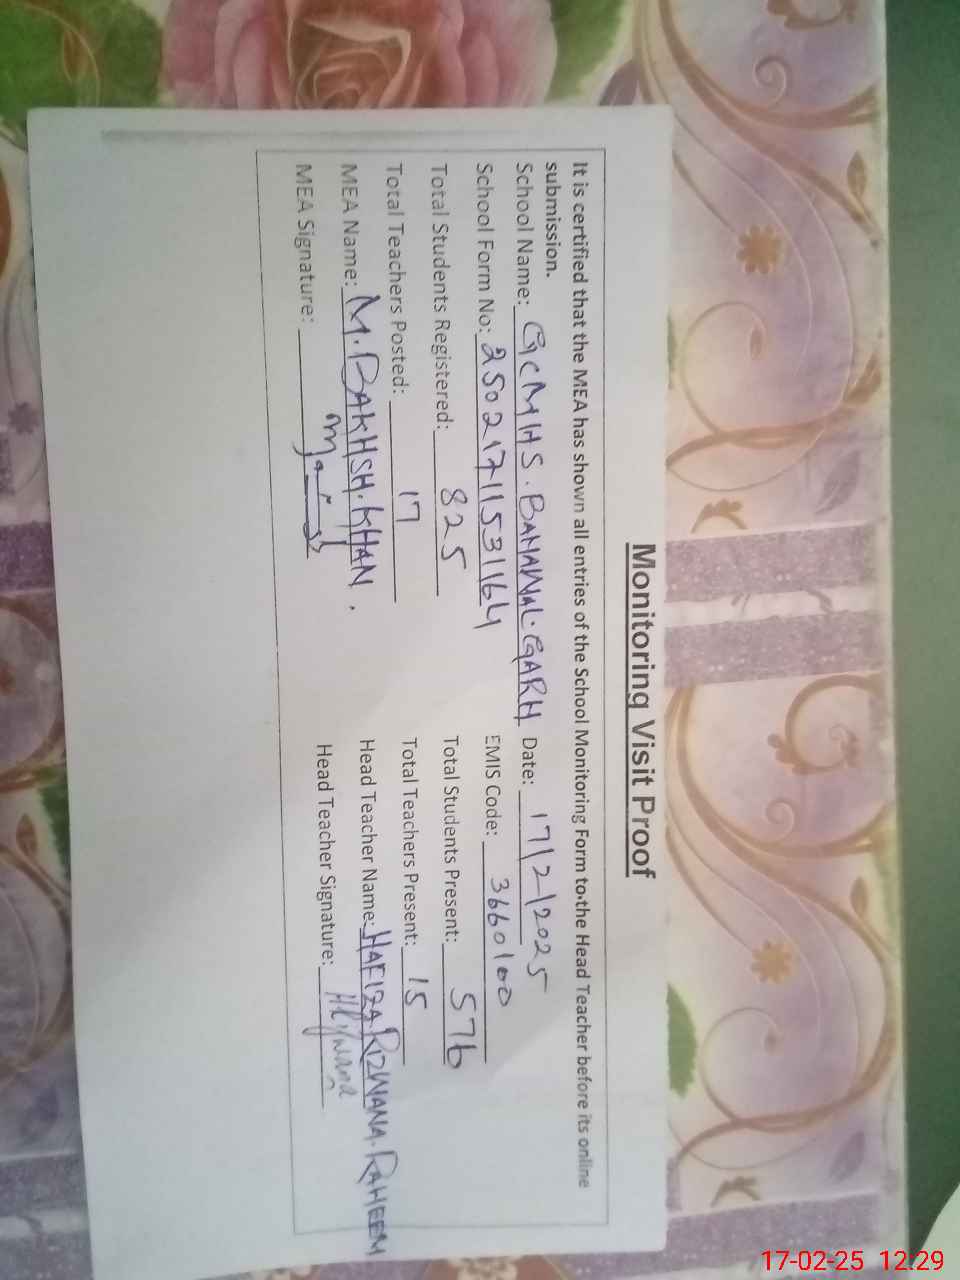 Monitoring Visit Proof
It is certified that the MEA has shown all entries of the School Monitoring Form to the Head Teacher before its online
submission.
School Name: GCMHS. BAHAWAL.GARH Date: 17/2/2025
School Form No: 25021711531164 EMIS Code: 3660100
Total Students Registered: 825 Total Students Present: 576
Total Teachers Posted: 17 Total Teachers Present: 15
MEA Name: M. BAKHSH. KHAN. Head Teacher Name: HAFIZA RIZWANA. RAHEEM
MEA Signature: Head Teacher Signature:
17-02-25 12:29